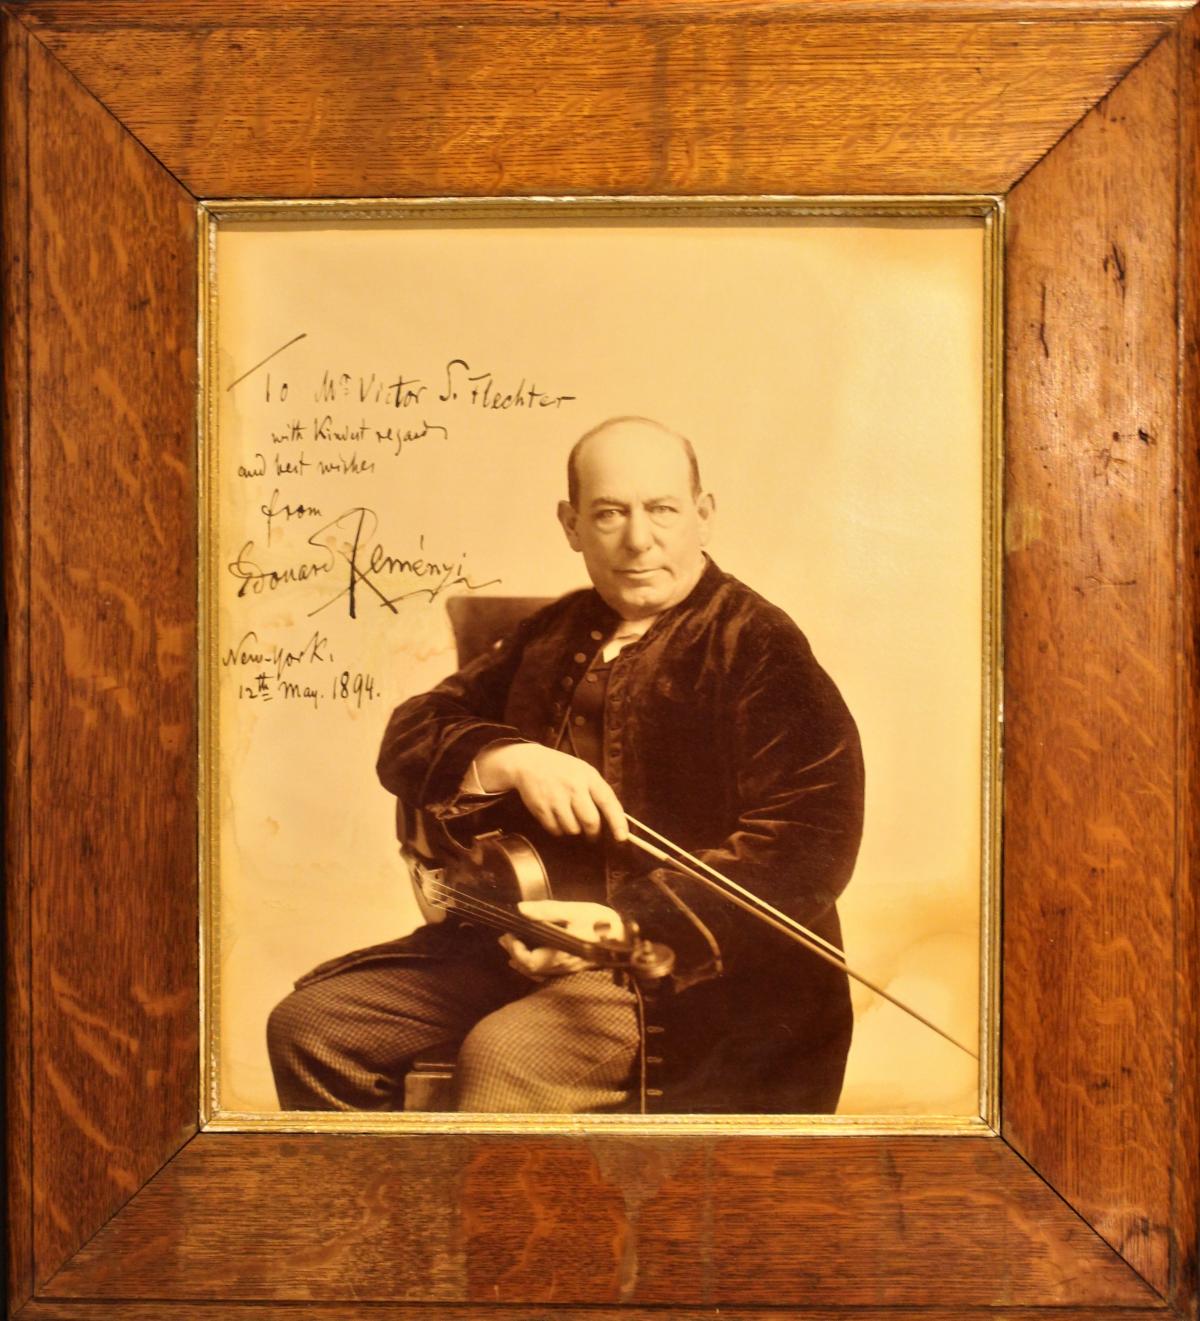 To Mr. Victor S. Flechter
with kindest regards
and best wishes
from
Edouard Reményi
New-York.
12th May. 1894.